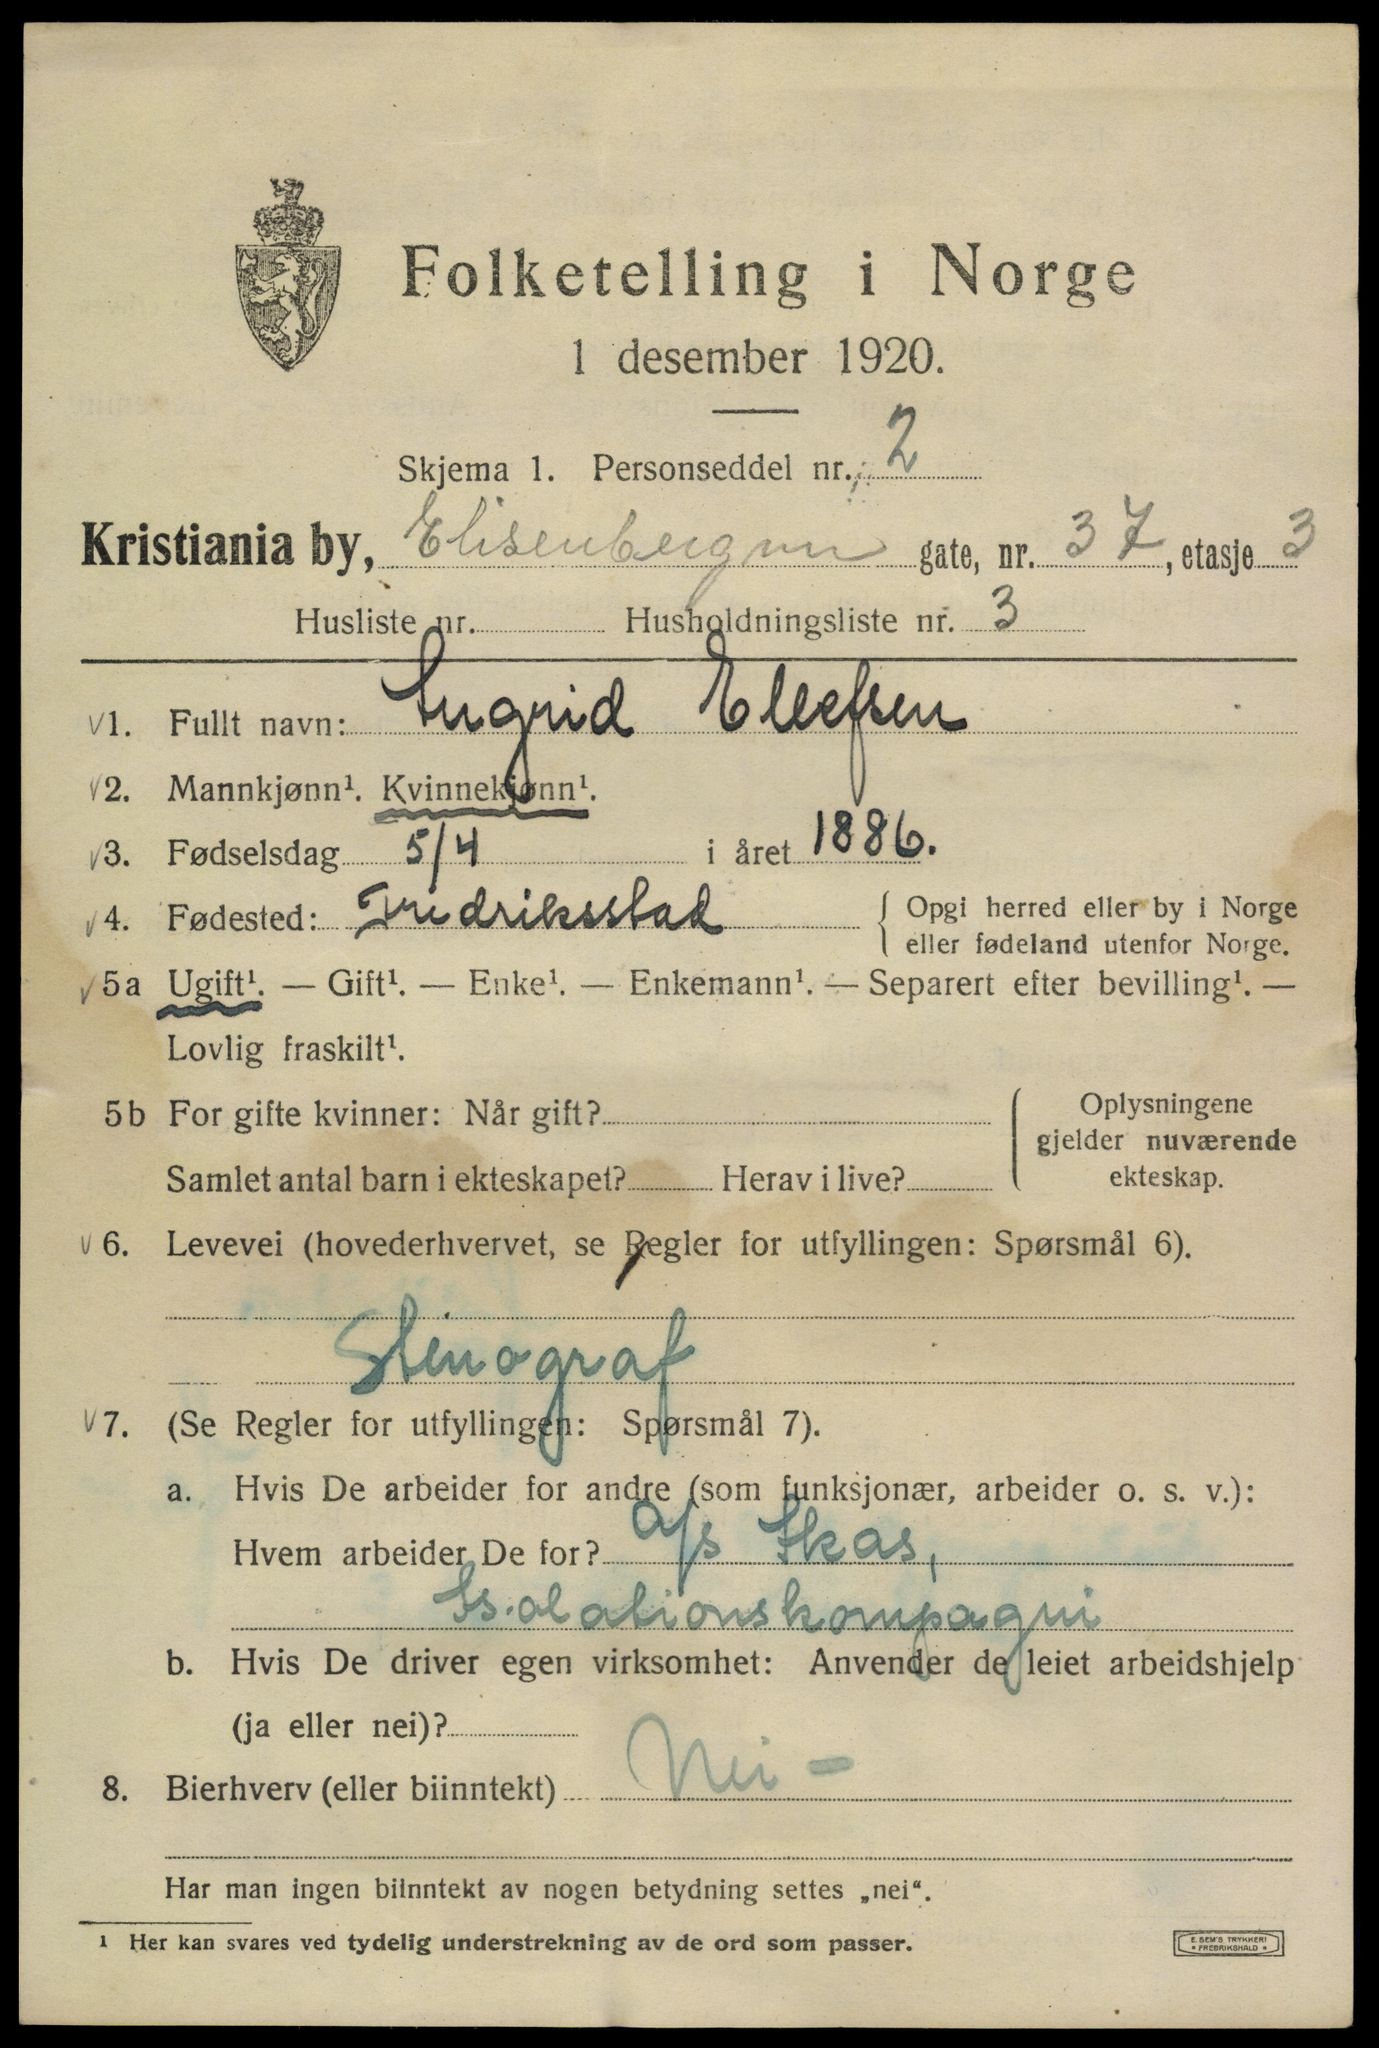 Folketelling i Norge
1 desember 1920.
Skjema 1. Personseddel nr. 2
Kristiania by, Elisenbergvn gate, nr. 37, etasje 3
Husliste nr. Husholdningsliste nr. 3
v 1. Fullt navn: Ingrid Ellefsen
v 2. Mannkjønn¹. Kvinnekjønn¹.
v 3. Fødselsdag 5/4 i året 1886.
v 4. Fødested: Fredriksstad { Opgi herred eller by i Norge
eller fødeland utenfor Norge.
v 5a Ugift¹. — Gift¹. — Enke¹. — Enkemann¹. — Separert efter bevilling¹. —
Lovlig fraskilt¹.
5b For gifte kvinner: Når gift? { Oplysningene
gjelder nuværende
Samlet antal barn i ekteskapet? Herav i live? ekteskap.
v 6. Levevei (hovederhvervet, se Regler for utfyllingen: Spørsmål 6).
Stenograf
v 7. (Se Regler for utfyllingen: Spørsmål 7).
a. Hvis De arbeider for andre (som funksjonær, arbeider o. s. v.):
Hvem arbeider De for? a/s Skas,
Isolationskompagni
b. Hvis De driver egen virksomhet: Anvender de leiet arbeidshjelp
(ja eller nei)?
8. Bierhverv (eller biinntekt) Nei -
Har man ingen biinntekt av nogen betydning settes „nei“.
¹ Her kan svares ved tydelig understrekning av de ord som passer.
E. SEM'S TRYKKERI
* FREDRIKSHALD *